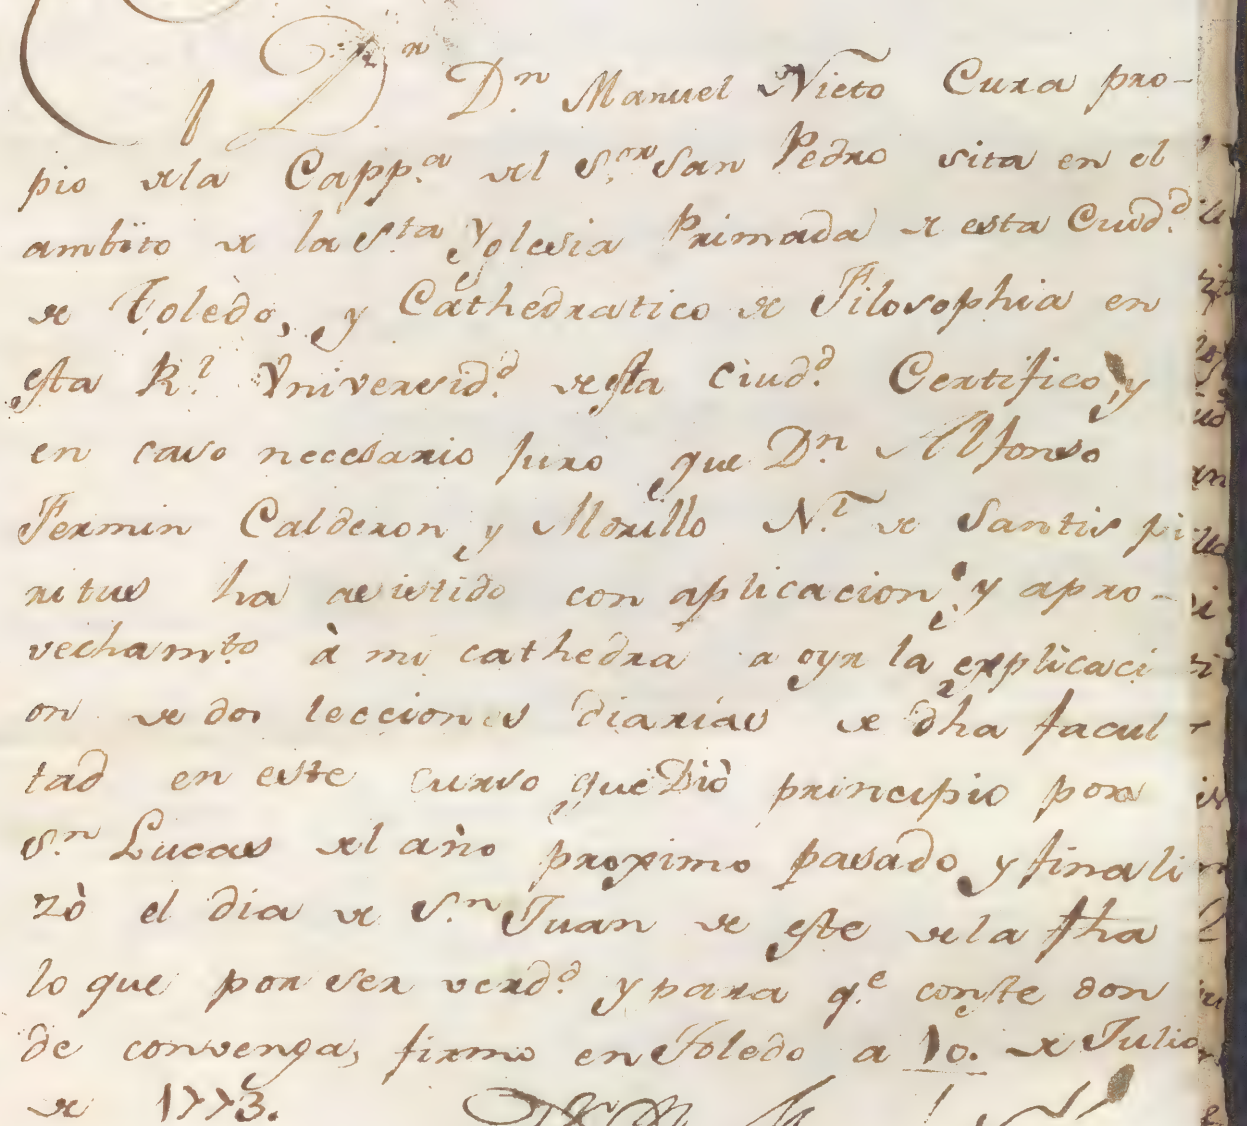 Dn. Dn. Manuel Nieto Cura pro-
pio de la Capp.a del S.or San Pedro sita en el
ambito de la S.ta Yglesia Primada de esta Ciudd.
de Toledo, y Cathedratico de Filosophia en
esta R.l Vniversidd. de esta ciudd. Certifico, y
en caso necesario juro que Dn. Alfonso
Fermin Calderon y Morillo N.l de Santispi
ritus ha asistido con aplicacion, y apro-
vechamto à mi cathedra a oyr la explicaci
on de dos lecciones diarias de dha facul
tad en este curso que Diò principio por
S.n Lucas del año proximo pasado y finali
zò el dia de S.n Juan de este de la fha
lo que por ser verdd. y para q.e conste don
de convenga, firmo en Toledo a 10. de Julio
de 1773.